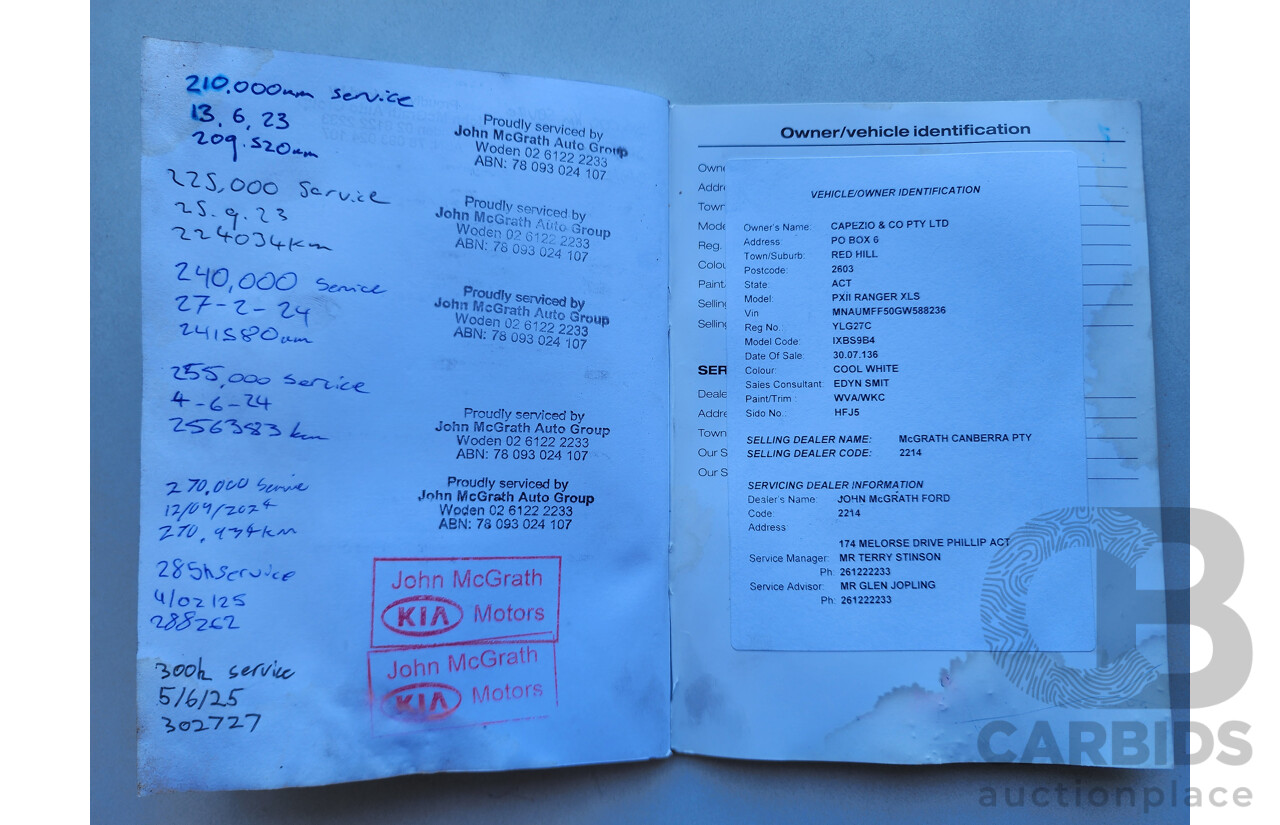 210,000km service
13.6.23
209.520km
Proudly serviced by
John McGrath Auto Group
Woden 02 6122 2233
ABN: 78 093 024 107
225,000 Service
25.9.23
224034km
Proudly serviced by
John McGrath Auto Group
Woden 02 6122 2233
ABN: 78 093 024 107
240,000 Service
27-2-24
241580km
Proudly serviced by
John McGrath Auto Group
Woden 02 6122 2233
ABN: 78 093 024 107
255,000 Service
4-6-24
256383km
Proudly serviced by
John McGrath Auto Group
Woden 02 6122 2233
ABN: 78 093 024 107
270,000 Service
12/09/2024
270,934km
Proudly serviced by
John McGrath Auto Group
Woden 02 6122 2233
ABN: 78 093 024 107
285k service
4/02/25
288262
John McGrath
KIA Motors
300k service
5/6/25
302727
John McGrath
KIA Motors
Owner/vehicle identification
VEHICLE/OWNER IDENTIFICATION
Owner's Name: CAPEZIO & CO PTY LTD
Address: PO BOX 6
Town/Suburb: RED HILL
Postcode: 2603
State: ACT
Model: PXII RANGER XLS
Vin MNAUMFF50GW588236
Reg No. YLG27C
Model Code: IXBS9B4
Date Of Sale: 30.07.136
Colour: COOL WHITE
Sales Consultant: EDYN SMIT
Paint/Trim : WVA/WKC
Sido No. HFJ5
SELLING DEALER NAME: McGRATH CANBERRA PTY
SELLING DEALER CODE: 2214
SERVICING DEALER INFORMATION
Dealer's Name: JOHN McGRATH FORD
Code: 2214
Address:
174 MELORSE DRIVE PHILLIP ACT
Service Manager: MR TERRY STINSON
Ph: 261222233
Service Advisor: MR GLEN JOPLING
Ph: 261222233
CARBIDS
auctionplace